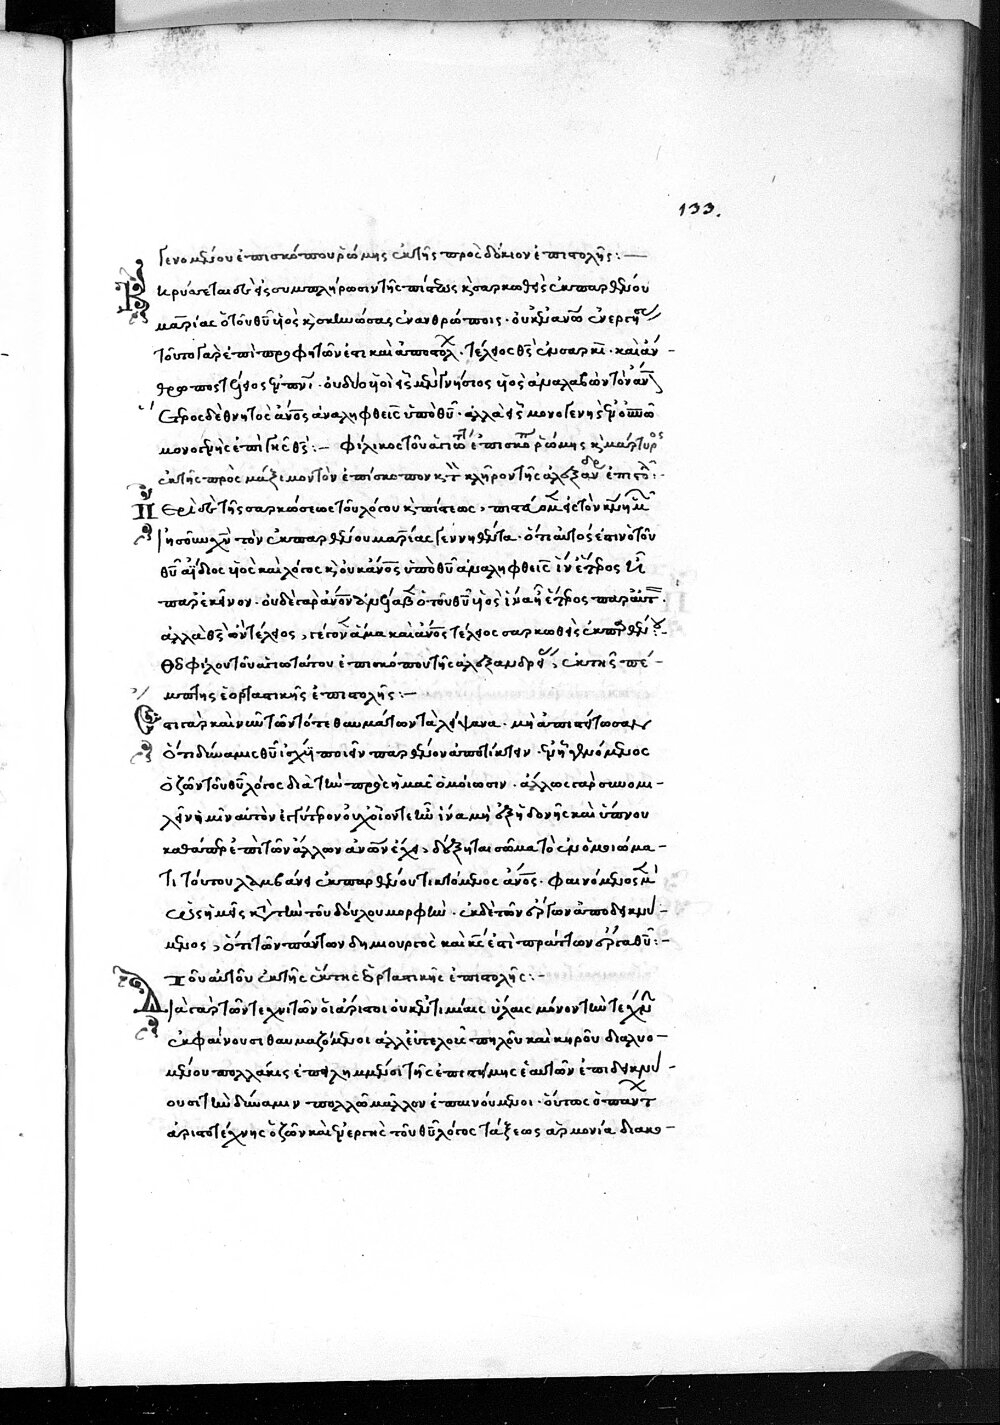 133.
γενομένου ἐπισκόπου ῥώμης ἐκ τῆς πρὸς δόκιον ἐπιστολῆς:—
Κηρύσσεται δὲ εἰς συμπλήρωσιν τῆς πίστεως κ σαρκωθεὶς ἐκ παρθένου
μαρίας ὁ τοῦ θῦ υἱὸς κ σκηνώσας ἐν ἀνθρώποις· οὐκ ἐν ἀνω ἐνεργήσας
τοῦτο γὰρ ἐπὶ προφητῶν ἐστι καὶ ἀποστόλ· τέλειος θς ἐν σαρκὶ· καὶ ἄν-
θρωπος τέλειος ἐν πνι· οὐ δύο υἱοὶ εἷς μὲν γνήσιος υἱὸς ἀναλαβὼν τὸν ἄνον
ἕτερος δὲ θνητὸς ἄνος ἀναληφθεὶς ὑπὸ θυ· ἀλλὰ εἷς μονογενὴς ἐν ουνω
μονογενὴς ἐπὶ γῆς θς:— φίλικος τοῦ ἁγιω ἐπισκο ῥώμης κ μάρτυρος
ἐκ τῆς πρὸς μάξιμον τὸν ἐπίσκοπον κ τ κλῆρον τῆς ἀλεξανδρ ἐπιστο:
Περὶ δὲ τῆς σαρκώσεως τοῦ λόγου κ πίστεως, πιστεύομεν εἰς τὸν κν ἡμῶν
ἰησοῦν χν τὸν ἐκ παρθένου μαρίας γεννηθέντα· ὅτι αὐτός ἐστιν ὁ τοῦ
θυ ἀΐδιος υἱὸς καὶ λόγος κ οὐκ ἄνος ὑπὸ θυ ἀναληφθεὶς ἵν ἕτερος ᾖ
παρ ἐκεῖνον· οὐδὲ γὰρ ἄνον ἀνέλαβεν ὁ τοῦ θυ υἱὸς ἵνα ᾖ ἕτερος παρ αὐτ·
ἀλλὰ θς ὢν τέλειος, γέγονεν ἅμα καὶ ἄνος τέλειος σαρκωθεὶς ἐκ παρθένου·
Θεοφίλου τοῦ ἁγιωτάτου ἐπισκόπου τῆς ἀλεξανδρείας, ἐκ τῆς πέ-
μπτης ἑορταστικῆς ἐπιστολῆς:—
Ἔστι γὰρ καὶ νῦν τῶν τότε θαυμάτων τὰ λείψανα· μὴ ἀπιστείτωσαν
ὅτι δύναμις θυ ἰσχύει ποιεῖν παρθένον ἀποτίκτειν· ἐν ᾗ γενόμενος
ὁ ζῶν τοῦ θυ λόγος διὰ τὴν πρὸς ἡμᾶς ὁμοίωσιν· ἄλλως γὰρ συνομι-
λεῖν ἡμῖν αὐτὸν ἐγγύτερον οὐχ οἷόν τε ἦν ἵνα μὴ ἐξ ἡδονῆς καὶ ὕπνου
καθάπερ ἐπὶ τῶν ἄλλων ἀνων ἔχει, δέξηται σῶμα τὸ ἐν ὁμοιώμα-
τι τούτου λαμβάνει ἐκ παρθένου τικτόμενος ἄνος· φαινόμενος μὲν
ὡς ἡμεῖς κατὰ τὴν τοῦ δούλου μορφὴν· ἐκ δὲ τῶν ἔργων ἀποδεικνύ-
μενος, ὅτι τῶν πάντων δημιουργὸς καὶ κς ἐστὶ πράττων ἔργα θυ:—
Τοῦ αὐτοῦ ἐκ τῆς ἕκτης ἑορταστικῆς ἐπιστολῆς:—
Διὰ γὰρ τῶν τεχνιτῶν οἱ ἄριστοι οὐκ ἐν τιμίαις ὕλαις μόνον τὴν τέχνην
ἐκφαίνουσι θαυμαζόμενοι ἀλλ εὐτελοῦς πηλοῦ καὶ κηροῦ διαλυο-
μένου πολλάκις ἐπειλημμένοι τῆς ἐπιστήμης ἑαυτῶν ἐπιδεικνύ-
ουσι τὴν δύναμιν πολλῶ μᾶλλον ἐπαινούμενοι· οὕτως ὁ πάντ
ἀριστοτέχνης ὁ ζῶν καὶ ἐνεργὴς τοῦ θυ λόγος τάξεως ἁρμονία διακο-